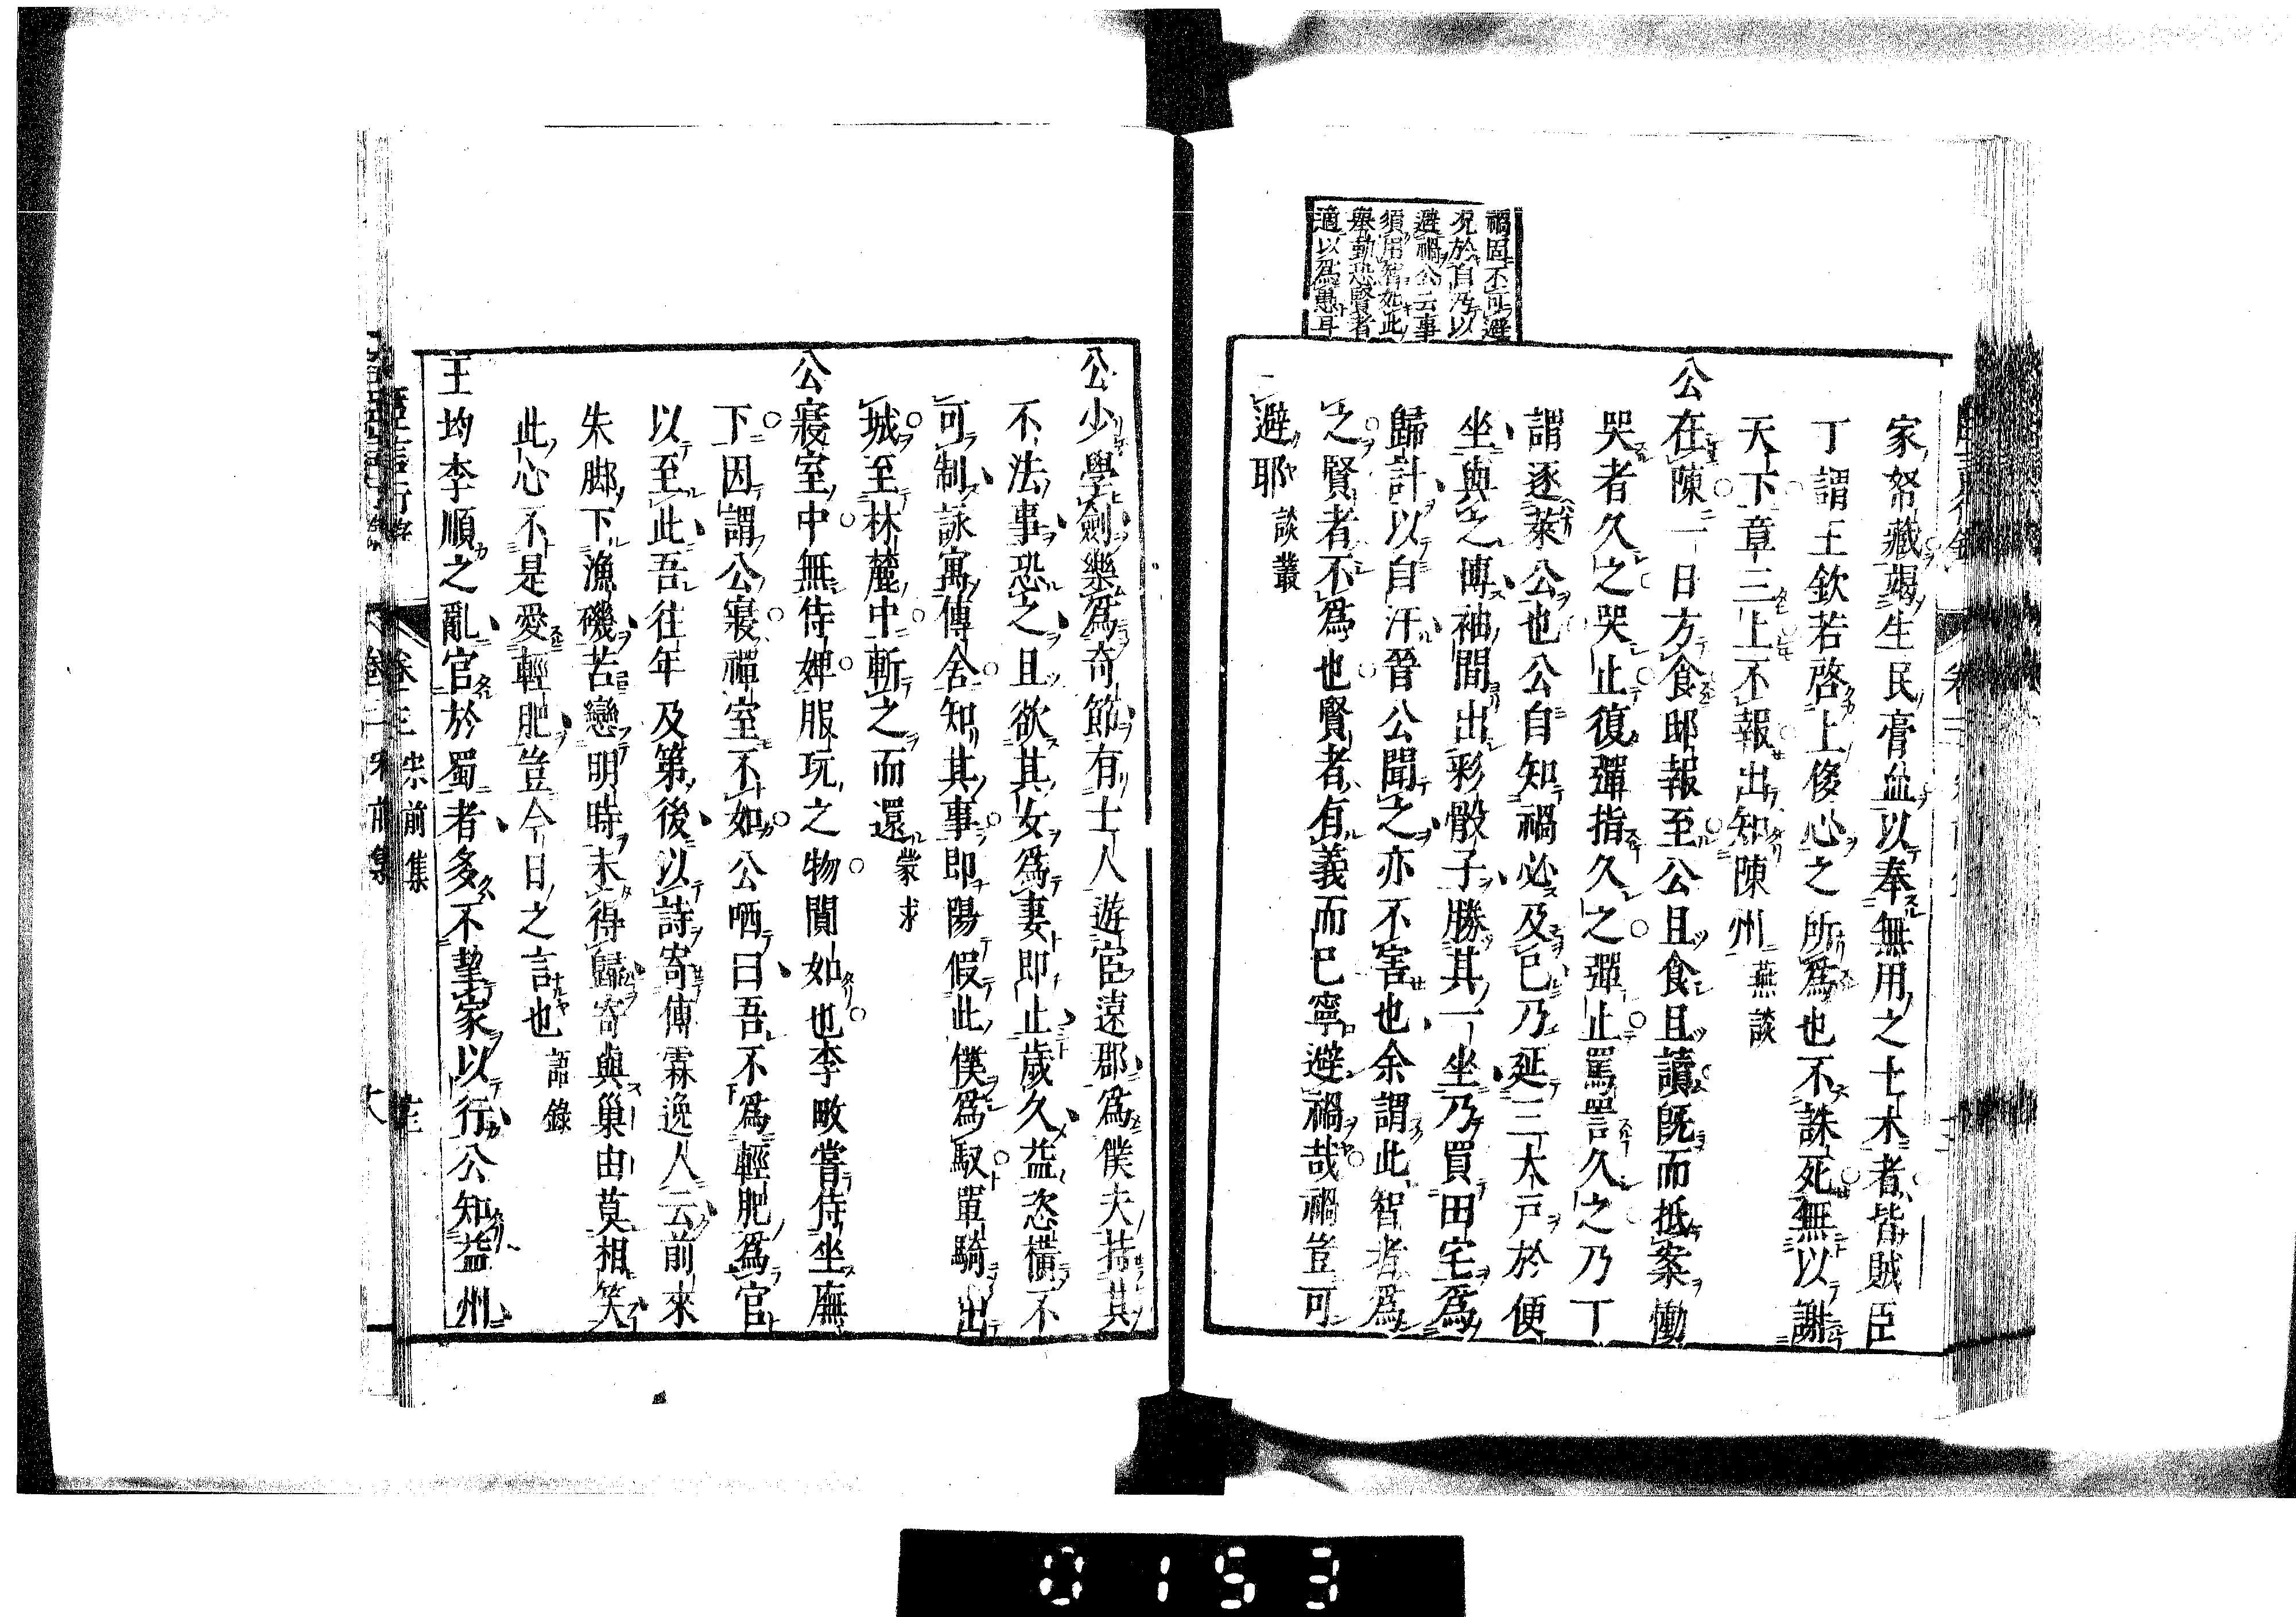 禍固不可避
況於自乃以
避禍公云事
須用智如此
舉動恐賢者
適以爲愚耳
家帑藏竭生民膏血以奉無用之土木者皆賊臣
丁謂王欽若啓上侈心之所爲也不誅死無以謝
天下章三上不報出知陳州 燕談
公在陳一日方食邸報至公且食且讀旣而抵案慟
哭者久之哭止復彈指久之彈止罵詈久之乃丁
謂逐萊公也公自知禍必及已乃延三大戸於便
坐與之博袖間出彩骰子勝其一坐乃買田宅爲
歸計以自汗晉公聞之亦不害也余謂此智者爲
之賢者不爲也賢者有義而巳寧避禍哉禍豈可
避耶 談叢
公少學劍樂爲奇節有士人遊宦遠郡爲僕夫持其
不法事恐之且欲其女爲妻即止歲久益恣橫不
可制詠寓傳舍知其事即陽假此僕爲馭單騎出
城至林麓中斬之而還 蒙求
公寢室中無侍婢服玩之物閴如也李畋嘗侍坐廡
下因謂公寢禪室不如公哂曰吾不爲輕肥爲官
以至此吾往年及第後以詩寄傅霖逸人云前來
失脚下漁磯苦戀明時未得歸寄與巢由莫相笑
此心不是愛輕肥豈今日之言也 語錄
王均李順之亂官於蜀者多不挈家以行公知益州
卷三 宋前集